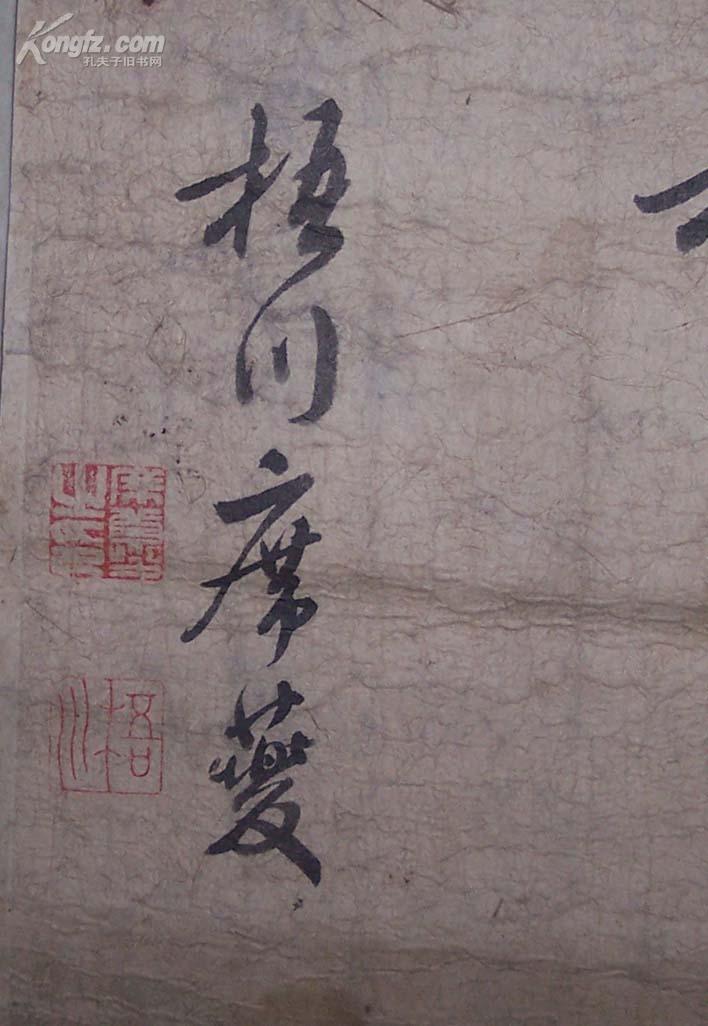 Kongfz.com
孔夫子旧书网
梧川席夔
梧川